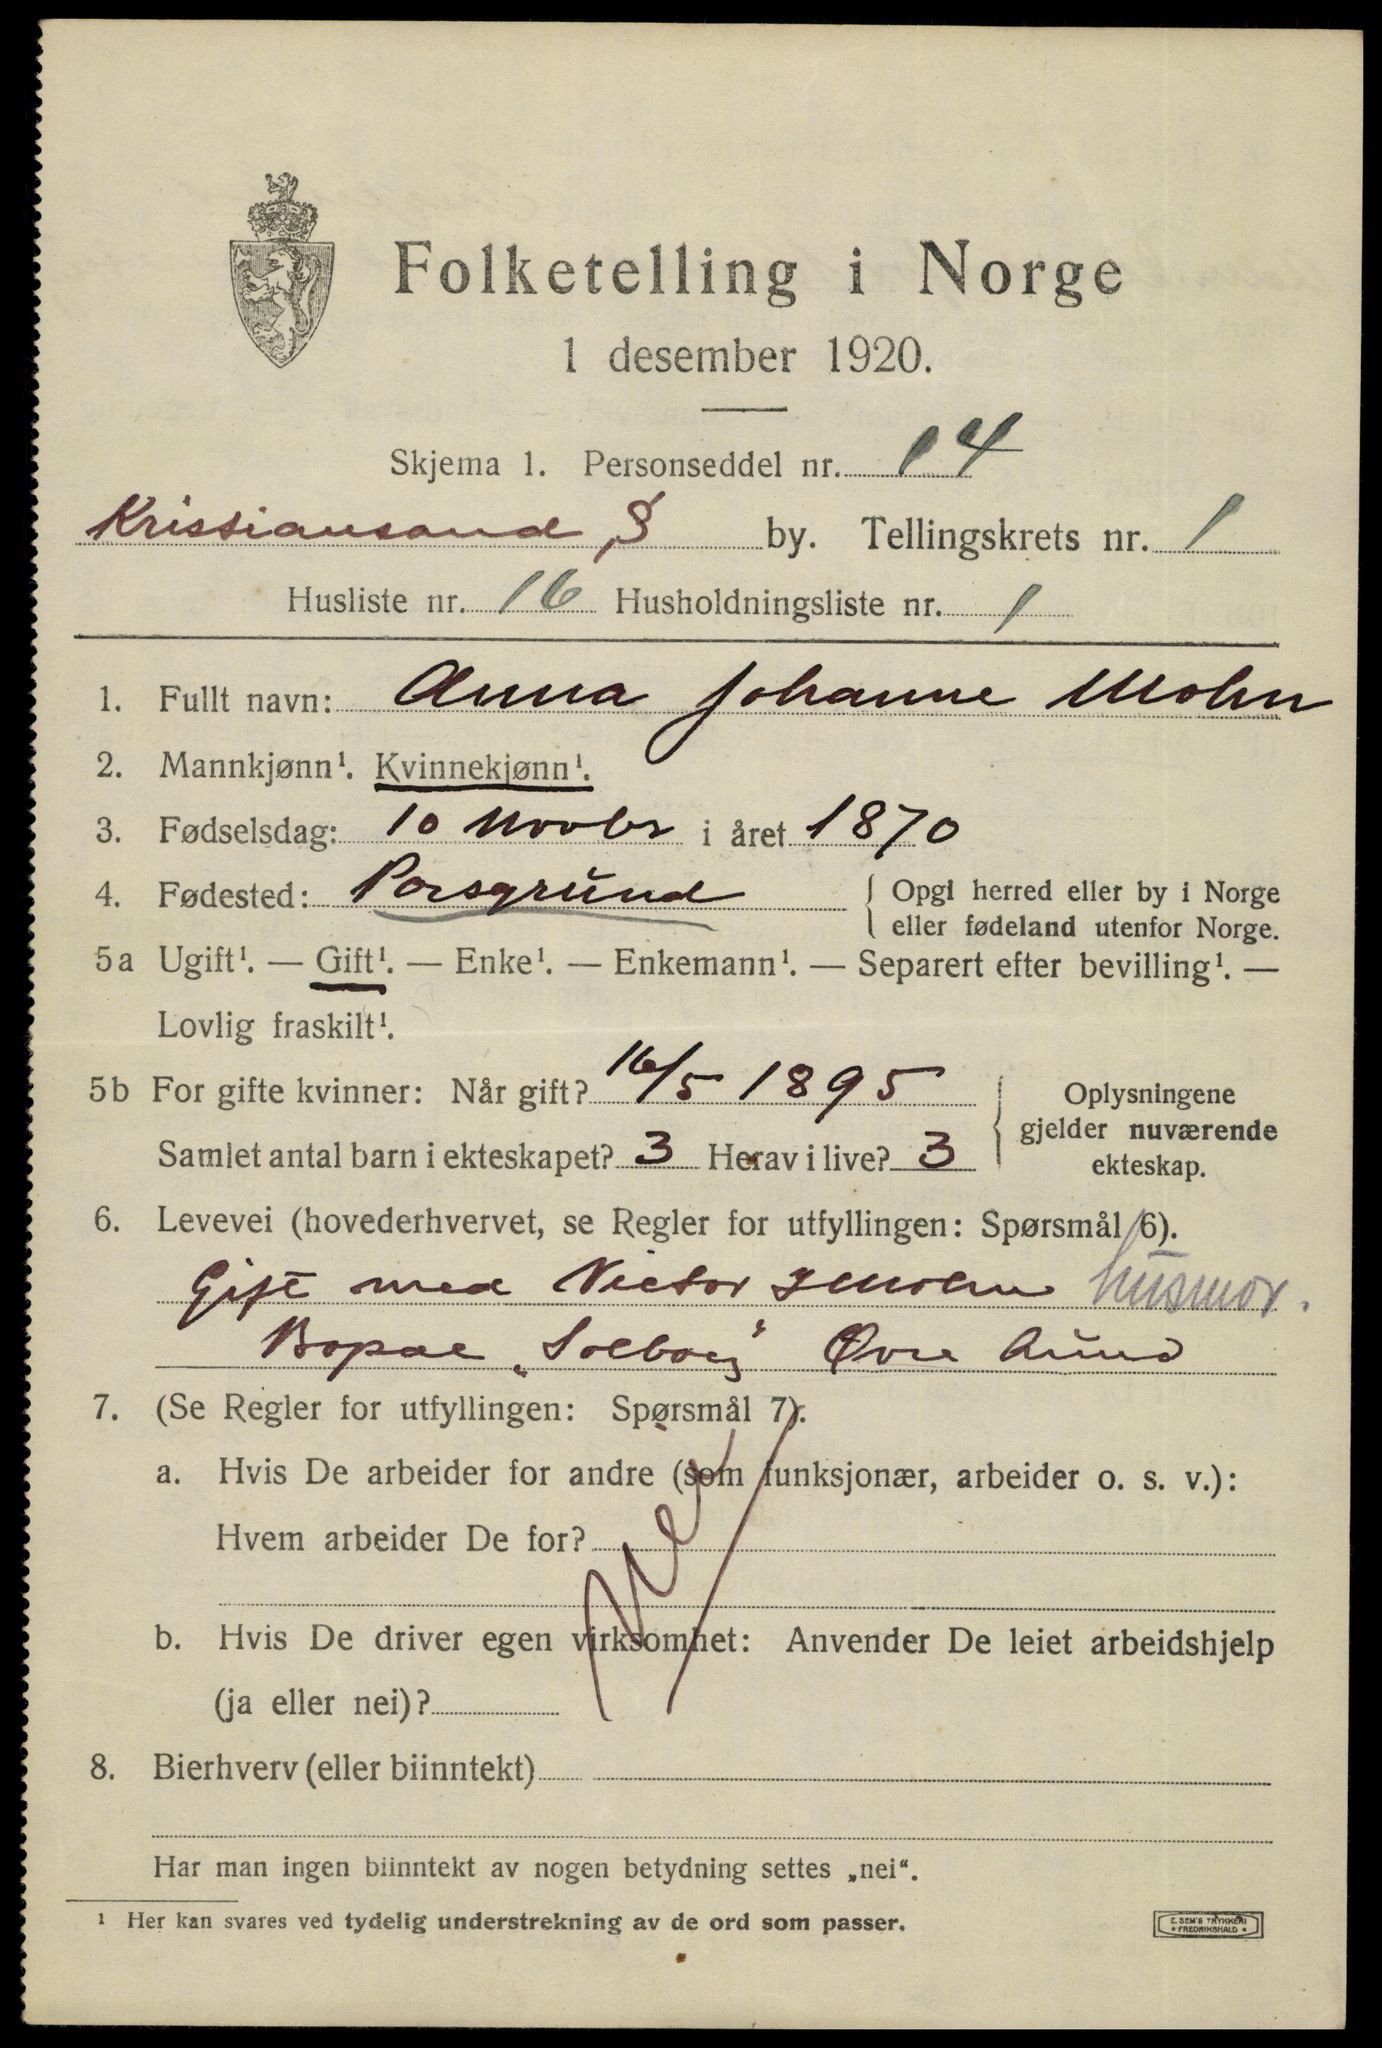 Folketelling i Norge
1 desember 1920.
Skjema 1. Personseddel nr. 14
Kristiansand S by. Tellingskrets nr. 1
Husliste nr. 16 Husholdningsliste nr. 1
1. Fullt navn: Anna Johanne Mohn
2. Mannkjønn¹. Kvinnekjønn¹.
3. Fødselsdag: 10 Novbr i året 1870
4. Fødested: Porsgrund { Opgi herred eller by i Norge
eller fødeland utenfor Norge.
5a Ugift¹. — Gift¹. — Enke¹. — Enkemann¹. — Separert efter bevilling¹. —
Lovlig fraskilt¹.
5b For gifte kvinner: Når gift? 16/5 1895 { Oplysningene
gjelder nuværende
ekteskap.
Samlet antal barn i ekteskapet? 3 Herav i live? 3
6. Levevei (hovederhvervet, se Regler for utfyllingen: Spørsmål 6).
Gift med Victor Mohn husmor.
Bopæl „Solborg" Øvre Lund
7. (Se Regler for utfyllingen: Spørsmål 7).
a. Hvis De arbeider for andre (som funksjonær, arbeider o. s. v.):
Hvem arbeider De for?
Nei
b. Hvis De driver egen virksomhet: Anvender De leiet arbeidshjelp
(ja eller nei)?
8. Bierhverv (eller biinntekt)
Har man ingen biinntekt av nogen betydning settes „nei“.
¹ Her kan svares ved tydelig understrekning av de ord som passer.
E. SEM'S TRYKKERI
* FREDRIKSHALD *